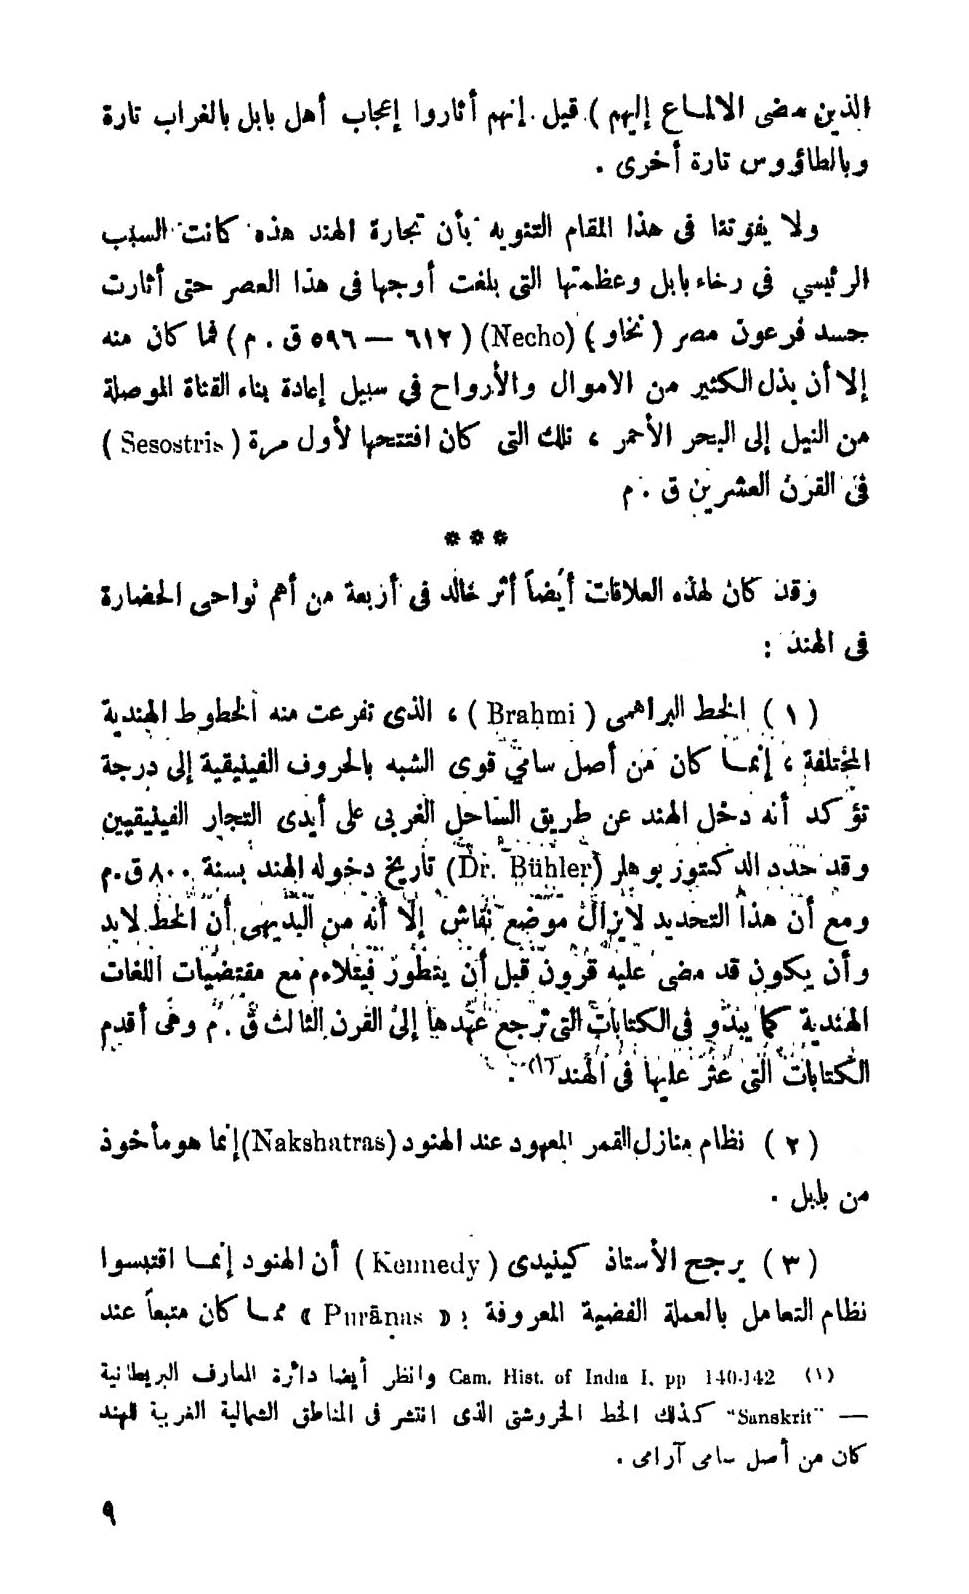 الذين مضى الالماع إليهم ) قيل . إنهم أثاروا إعجاب أهل بابل بالغراب تارة
وبالطاؤوس تارة أخرى .
ولا يفوتنا فى هذا المقام التنويه بأن تجارة الهند هذه كانت السبب
الرئيسي فى رخاء بابل وعظمتها التى بلغت أوجها فى هذا العصر حتى أثارت
حسد فرعون مصر ( نخاو ) (Necho) ( ٦١٢ — ٥٩٦ ق . م ) فما كان منه
إلا أن بذل الكثير من الاموال والأرواح في سبيل إعادة بناء القناة الموصلة
من النيل إلى البحر الأحمر ، تلك التى كان افتتحها لأول مرة ( Sesostris )
فى القرن العشرين ق . م
***
وقد كان لهذه العلاقات أيضاً أثر خالد فى أربعة من أهم نواحى الحضارة
فى الهند :
( ١ ) الخط البراهمى ( Brahmi ) ، الذى تفرعت منه الخطوط الهندية
المختلفة ، إنما كان من أصل سامي قوى الشبه بالحروف الفينيقية إلى درجة
تؤكد أنه دخل الهند عن طريق الساحل الغربى على أيدى التجار الفينيقيين
وقد حدد الدكتور بوهلر (Dr. Bühler) تاريخ دخوله الهند بسنة ٨٠٠ ق.م
ومع أن هذا التحديد لايزال موضع نقاش إلا أنه من البديهى أن الخط لابد
وأن يكون قد مضى عليه قرون قبل أن يتطور فيتلاءم مع مقتضيات اللغات
الهندية كما يبدو فى الكتابات التى ترجع عهدها إلى القرن الثالث ق . م وهى أقدم
الكتابات التى عثر عليها فى الهند (١) .
( ٢ ) نظام منازل القمر المعهود عند الهنود (Nakshatras) إنما هو مأخوذ
من بابل .
( ٣ ) يرجح الأستاذ كينيدى ( Kennedy ) أن الهنود إنما اقتبسوا
نظام التعامل بالعملة الفضية المعروفة بـ « Purānas » مما كان متبعاً عند
(١) Cam. Hist. of India I. pp 140-142 وانظر أيضا دائرة المعارف البريطانية
— "Sanskrit" كذلك الخط الخروشتى الذى انتشر فى المناطق الشمالية الغربية للهند
كان من أصل سامى آرامى .
٩